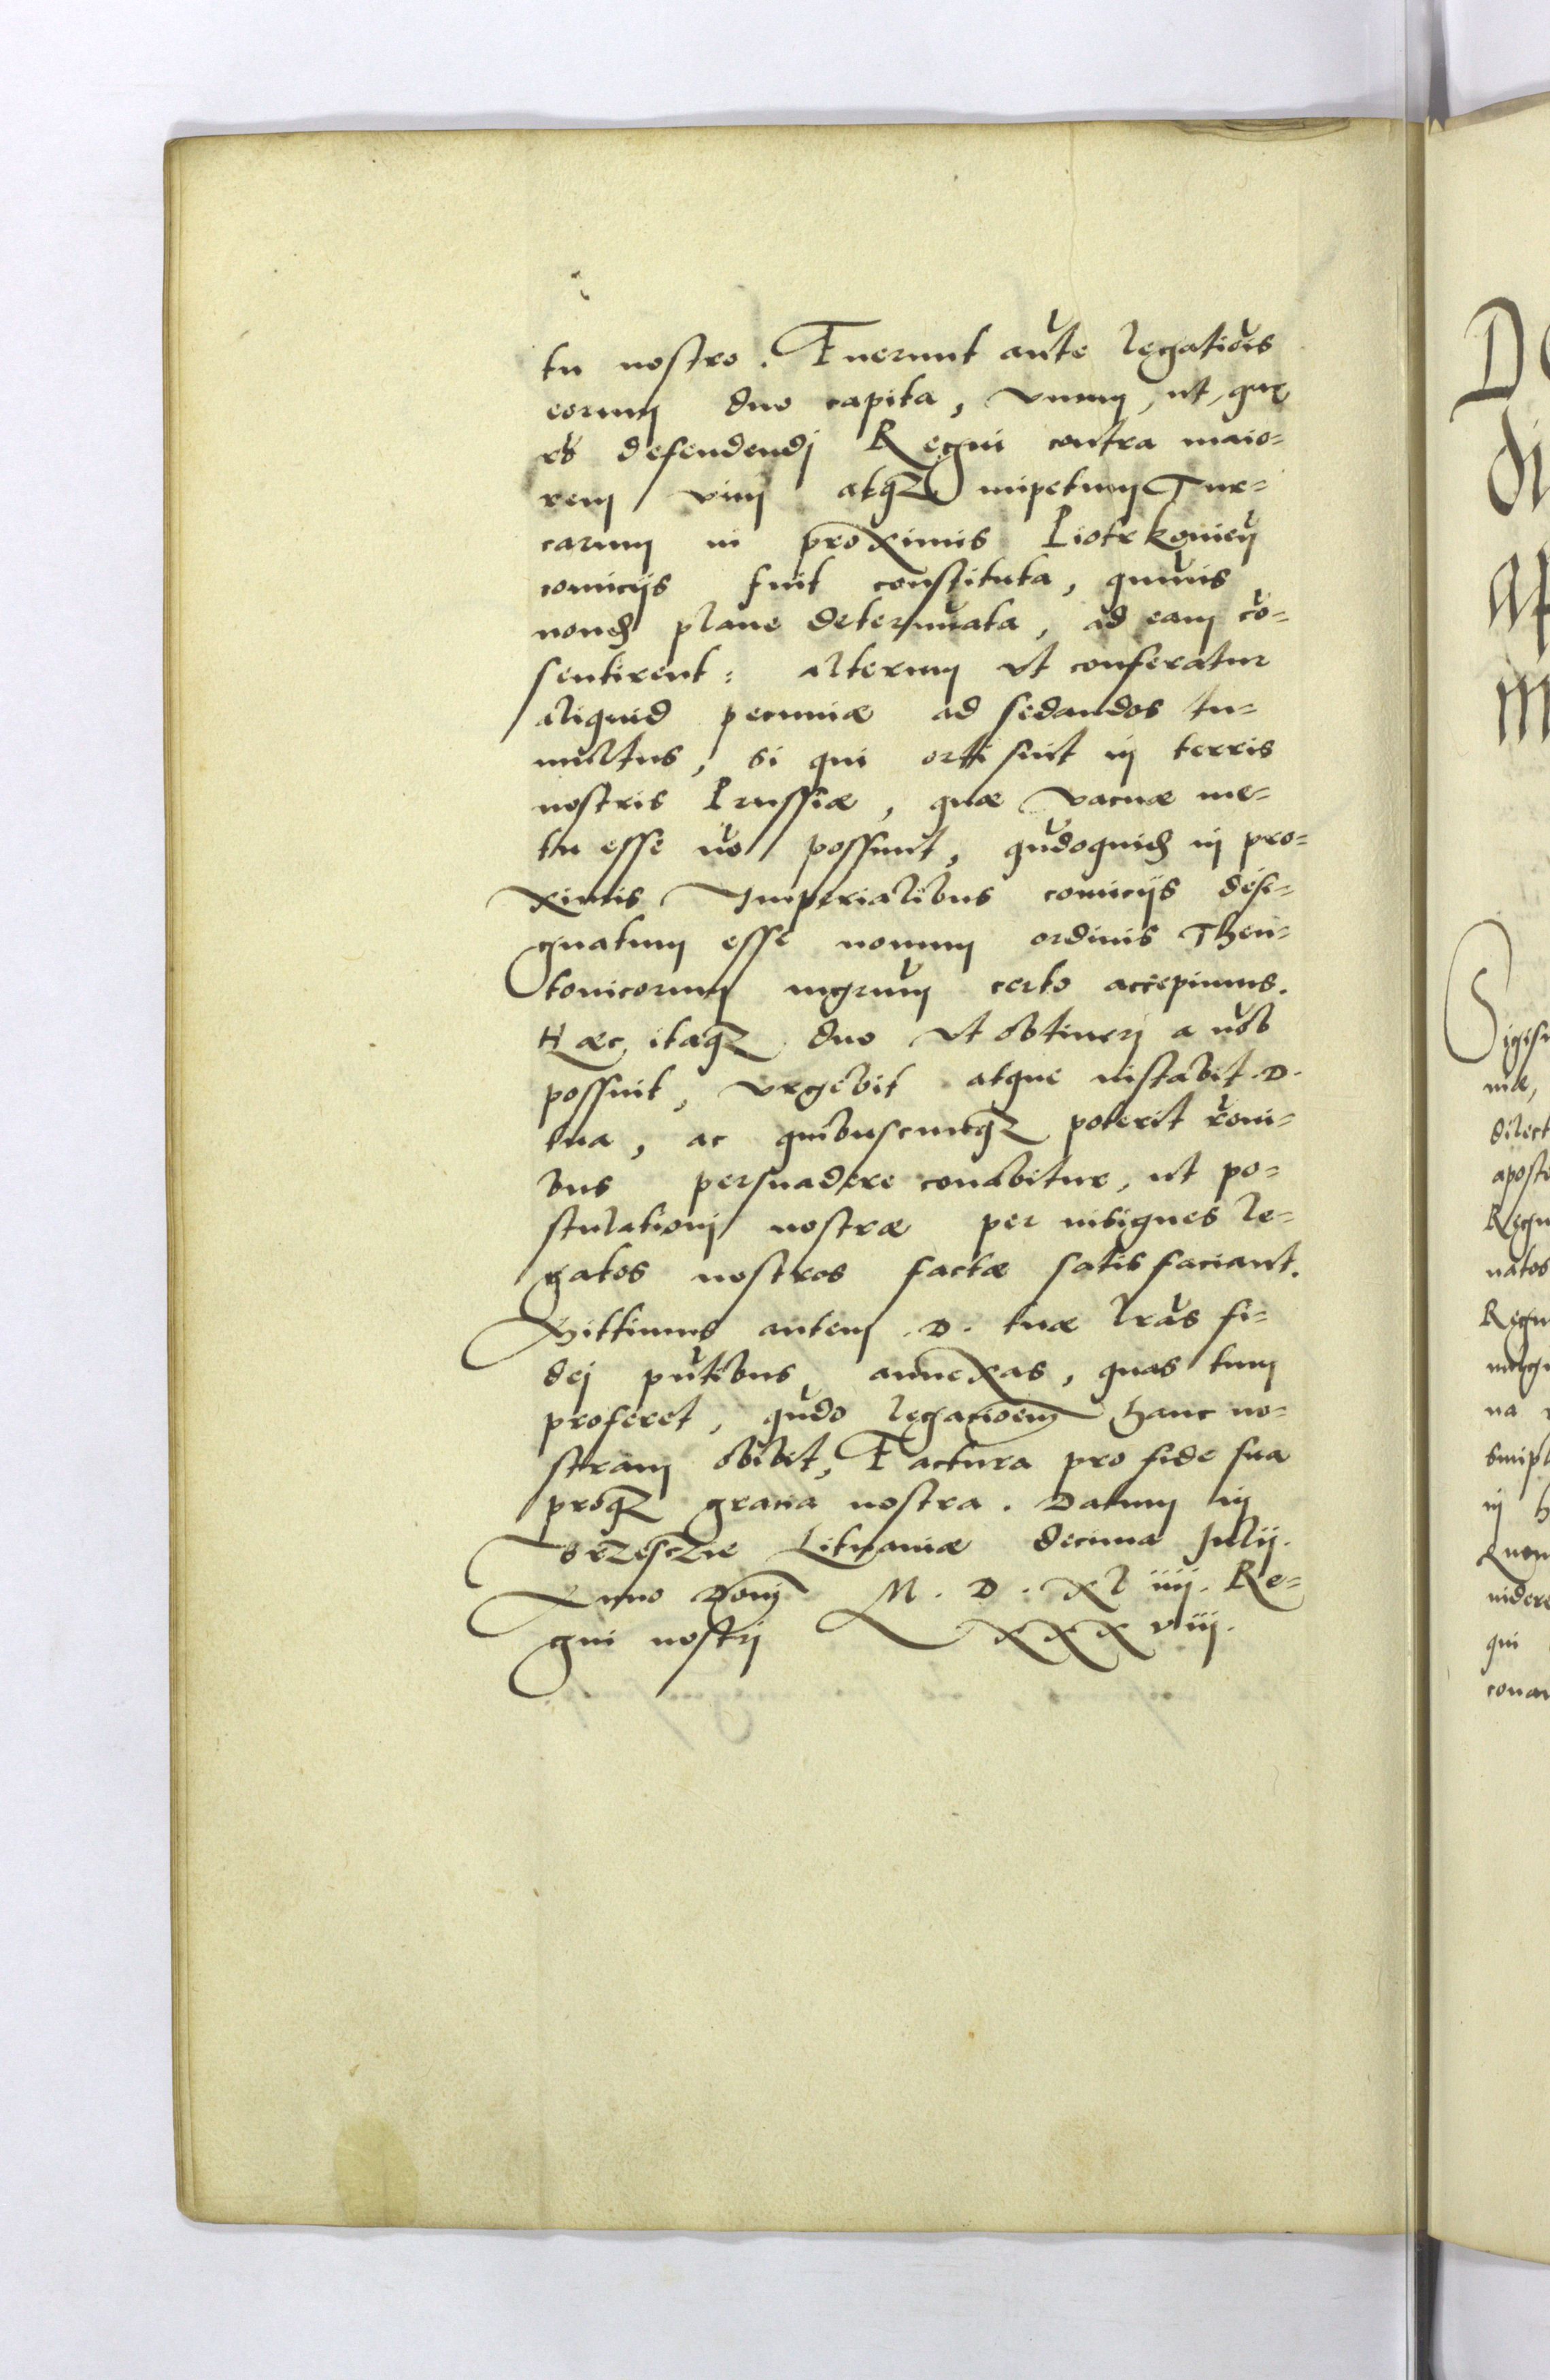 tu nostro. Fuerunt aũte legatiõis
eorum duo capita, vnum, ut, quę
rõ defendendj Regni contra maio=
rem vim atqꝫ impetum Tur=
carum in proximis Piotrkouieñ
comicijs fuit constituta, quãuis
nondũ plane determinata, ad eam cõ=
sentirent: alterum vt conferatur
aliquid pecuniæ ad sedandos tu=
multus, si qui orti sint in terris
nostris Prussiæ, quæ vacuæ me=
tu esse nõ possunt, quãdoquidẽ in pro=
ximis Imperialibus comicijs desi=
gnatum esse nouum ordinis Theu=
tonicorum mgrum̃ certo accepimus.
Hæc itaqꝫ duo vt obtinerj a uob̃
possint, vrgebit atque instabit .D.
tua, ac quibuscunqꝫ poterit rõni=
bus persuadere conabitur, ut po=
stulationj nostræ per insignes le=
gatos nostros factæ satisfaciant.
Mittimus autem .D. tuæ lr̃as fi=
dej pñtibus annexas, quas tum
proferet, quãdo legacioẽm hanc no=
stram obibit, Factura pro fide sua
proqꝫ gracia nostra. Datum in
Brzesczie Lituaniæ decima Julij.
Anno Domĩ M. D. xl iiij. Re=
gni nostrj xxx viij.
D
di
Ap
M
Sigis
niæ,
dilect
apost
Regn
natos
Regn
na
in
Quon
uidere
qui
conan